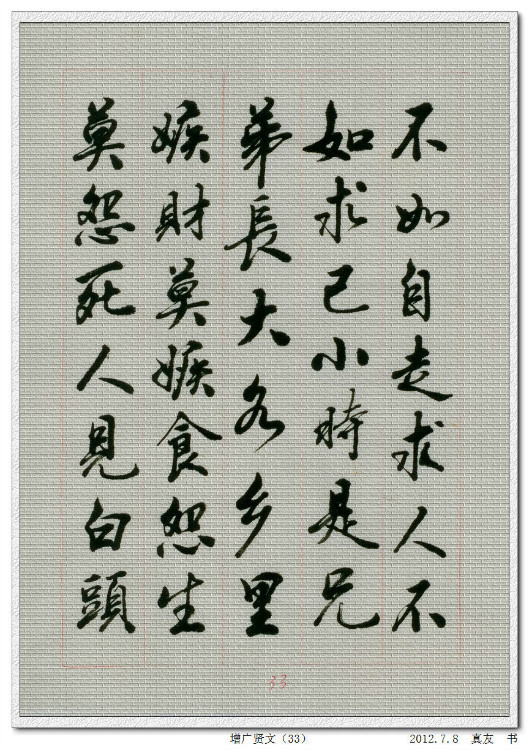 不如自走求人不
如求己小時是兄
弟長大各乡里
嫉財莫嫉食怨生
莫怨死人見白頭
33
增广贤文（33）
2012.7.8 真友 书